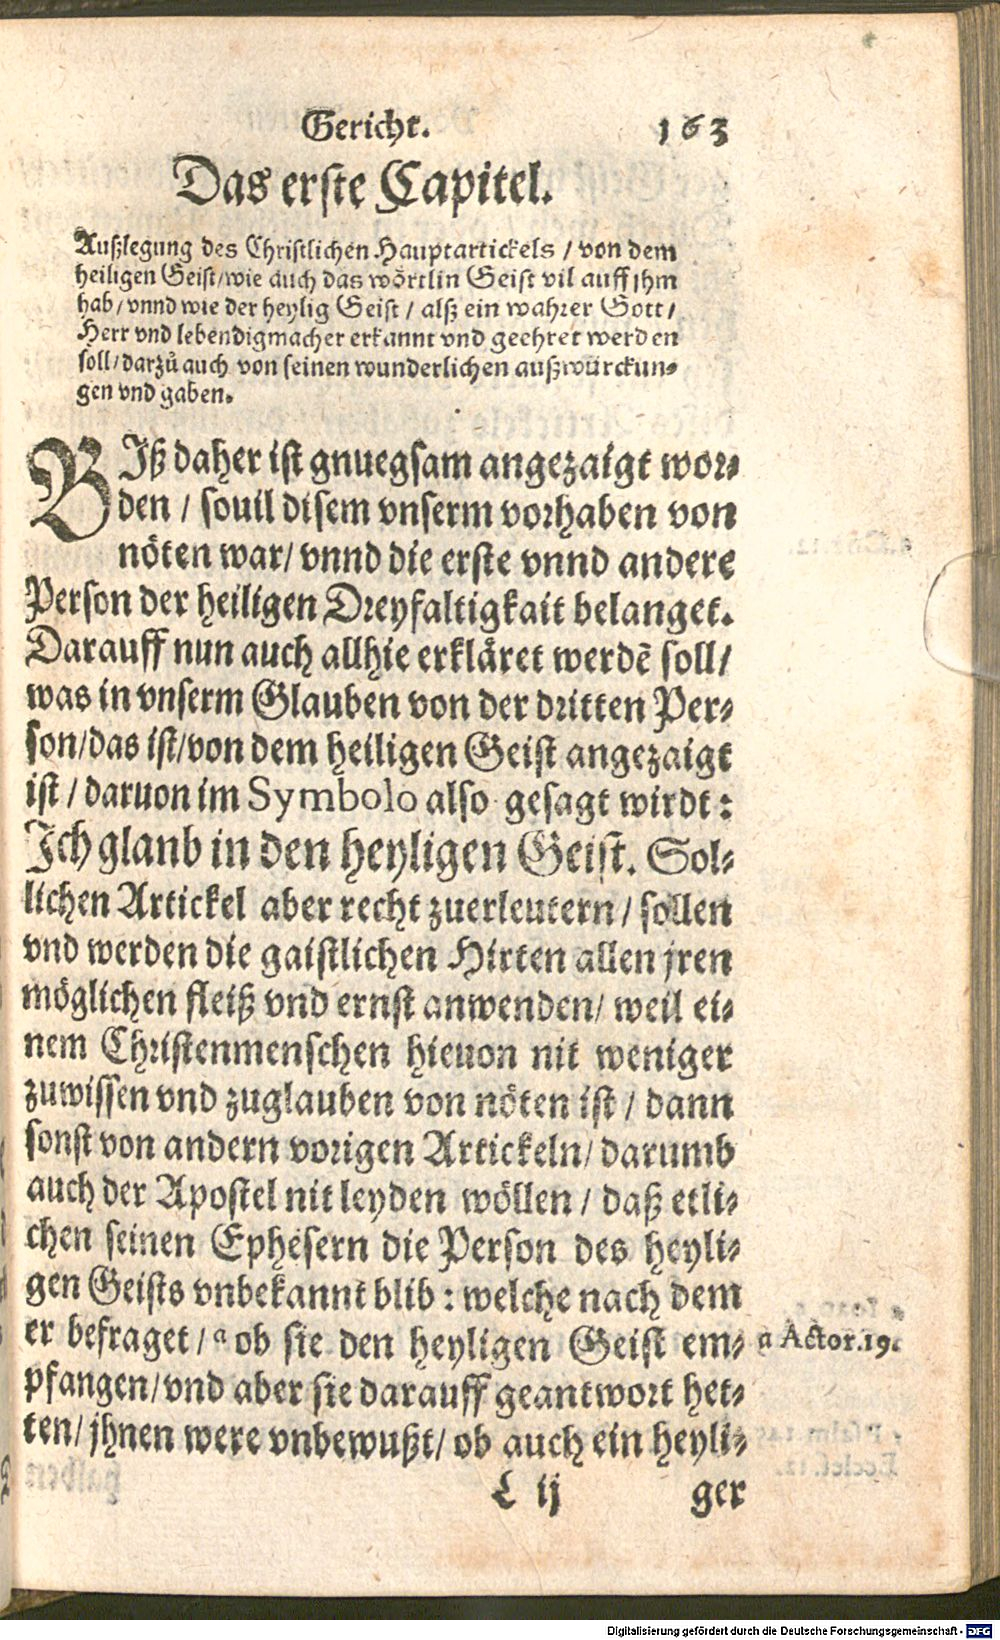 Gericht. 163
Das erste Capitel.
Außlegung des Christlichen Hauptartickels / von dem
heiligen Geist/wie auch das wörtlin Geist vil auff jhm
hab/ vnnd wie der heylig Geist / alß ein wahrer Gott/
Herr vnd lebendigmacher erkannt vnd geehret werden
soll/darzů auch von seinen wunderlichen außwürckun-
gen vnd gaben.
BIß daher ist gnuegsam angezaigt wor-
den / souil disem vnserm vorhaben von
nöten war/ vnnd die erste vnnd andere
Person der heiligen Dreyfaltigkait belanget.
Darauff nun auch allhie erkläret werdē soll/
was in vnserm Glauben von der dritten Per-
son/das ist/von dem heiligen Geist angezaigt
ist / daruon im Symbolo also gesagt wirdt:
Ich glanb in den heyligen Geist. Sol-
lichen Artickel aber recht zuerleutern / sollen
vnd werden die gaistlichen Hirten allen jren
möglichen fleiß vnd ernst anwenden/ weil ei-
nem Christenmenschen hieuon nit weniger
zuwissen vnd zuglauben von nöten ist / dann
sonst von andern vorigen Artickeln/ darumb
auch der Apostel nit leyden wöllen / daß etli-
chen seinen Ephesern die Person des heyli-
gen Geists vnbekannt blib : welche nach dem
er befraget/ a ob sie den heyligen Geist em-
pfangen/vnd aber sie darauff geantwort het-
ten/ jhnen were vnbewußt/ ob auch ein heyli-
a Actor.19.
L ij ger
Digitalisierung gefördert durch die Deutsche Forschungsgemeinschaft - DFG